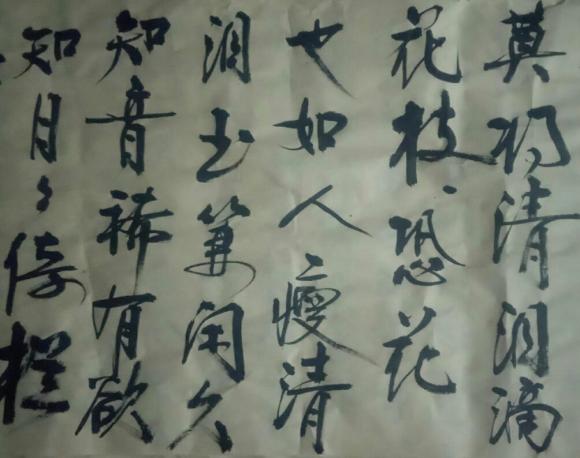 莫将清泪滴
花枝恐花
也如人瘦清
润玉箫闲久
知音稀有欲
知日々倚栏